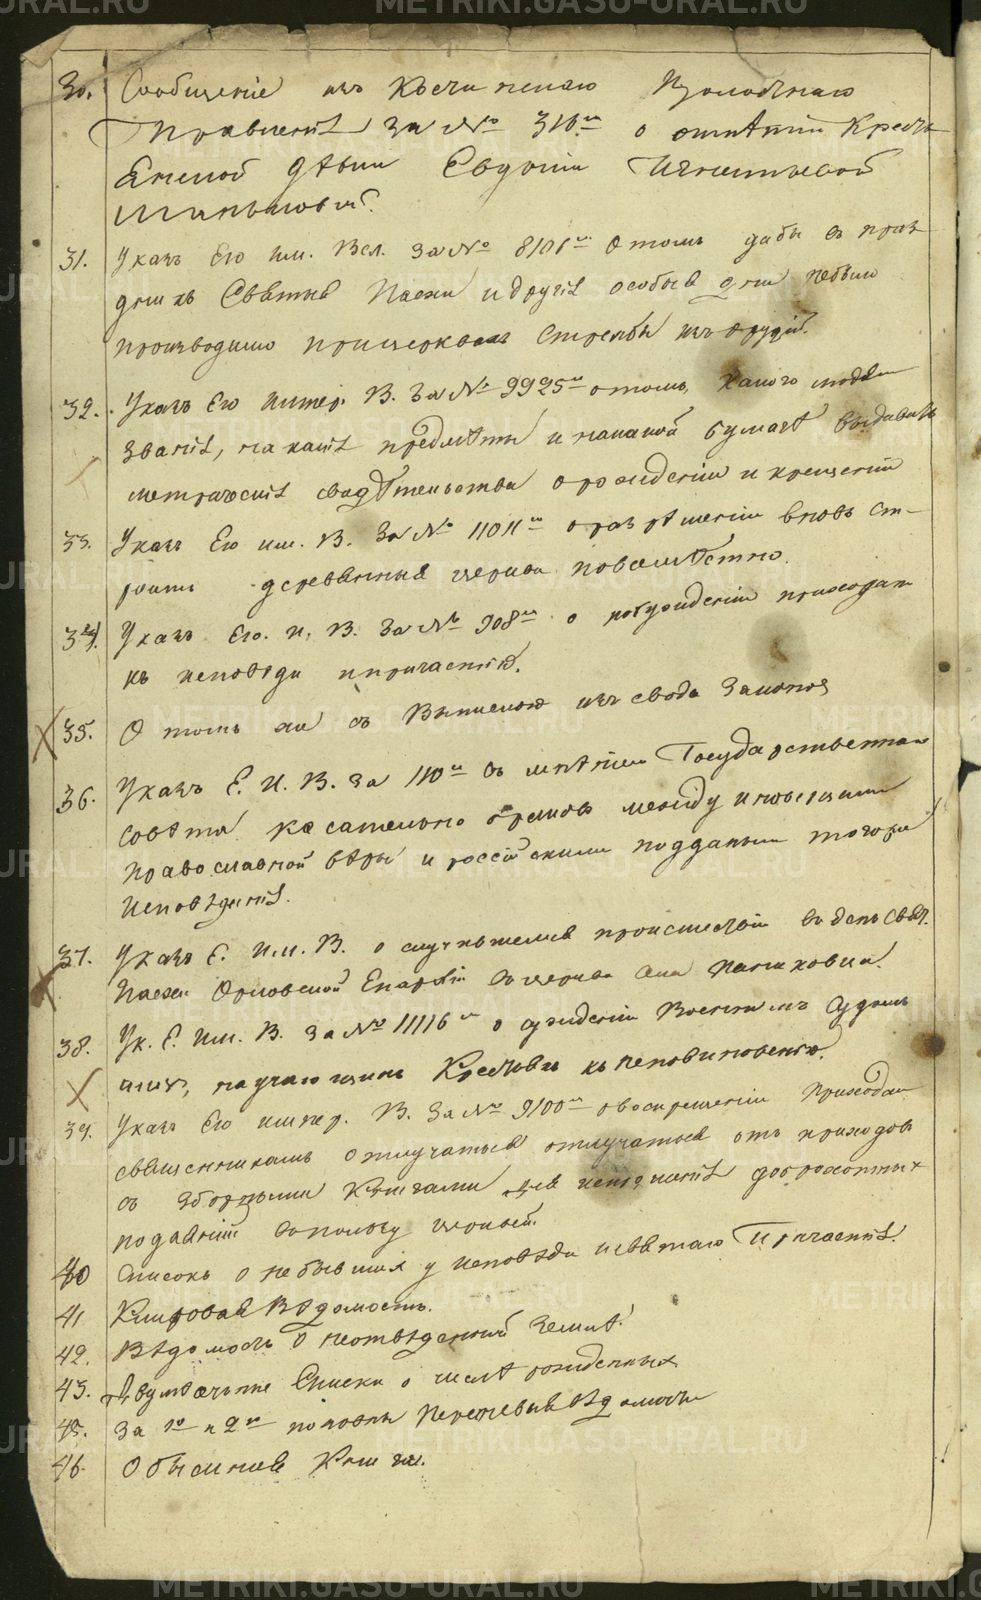 METRIKI.GASO-URAL.RU
30. Сообщеніе изъ Волостнаго
Правленія за № 316м о Кресть
янской дѣвки Евдокіи Игнатьевой
31. Указъ Его Им. Вел. За № 8101м о томъ дабы въ праз
дникъ Святыя Пасхи и другія особыя дни небыло
производимо при церквахъ Стрельбы изъ орудій.
32. Указъ Его Импер. В. За № 9925м о томъ, какого
званія, на какія предмѣты и на какой бумагѣ выдавать
метрическія свидѣтельства о рожденіи и крещеніи
33. Указъ Его им. В. За № 11011м о разрѣшеніи вновь ст-
роить деревянныя церкви повсемѣстно.
34. Указъ Его. И. В. За № 908м о побужденіи прихожан
къ исповѣди и причастію.
35. О томъ же съ Выпискою изъ свода Законов
36. Указъ Е. И. В. за 110м съ мнѣніем Государственнаго
Совѣта касательно браковъ между иновѣрцами
православной вѣры и россійскими подданными тогоже
Исповѣданія.
37. Указъ Е. Им. В. о случившемся происшествіи въ день Свят.
Пасхи Орловской Епархіи въ церкви села
38. Ук. Е. Им. В. За № 11116м о сужденіи Военнымъ Судомъ
лицъ, научающихъ Крестьянъ къ неповиновенію.
39. Указъ Его импер. В. За № 9100м о воспрещеніи Приход.
священникамъ отлучаться отлучаться отъ приходовъ
съ зборными Книгами для доброхотных
подаяній въ пользу церквей.
40 Списокъ о небывших у исповѣди и святаго Причастія.
41 Клировая Вѣдомость.
42. Вѣдомость о неотведенной Землѣ.
43. Двумѣсячные Списки о числѣ рожденных
45. За 1ю и 2ю половины Вѣдомости
46. Обыскная Книга.
METRIKI.GASO-URAL.RU